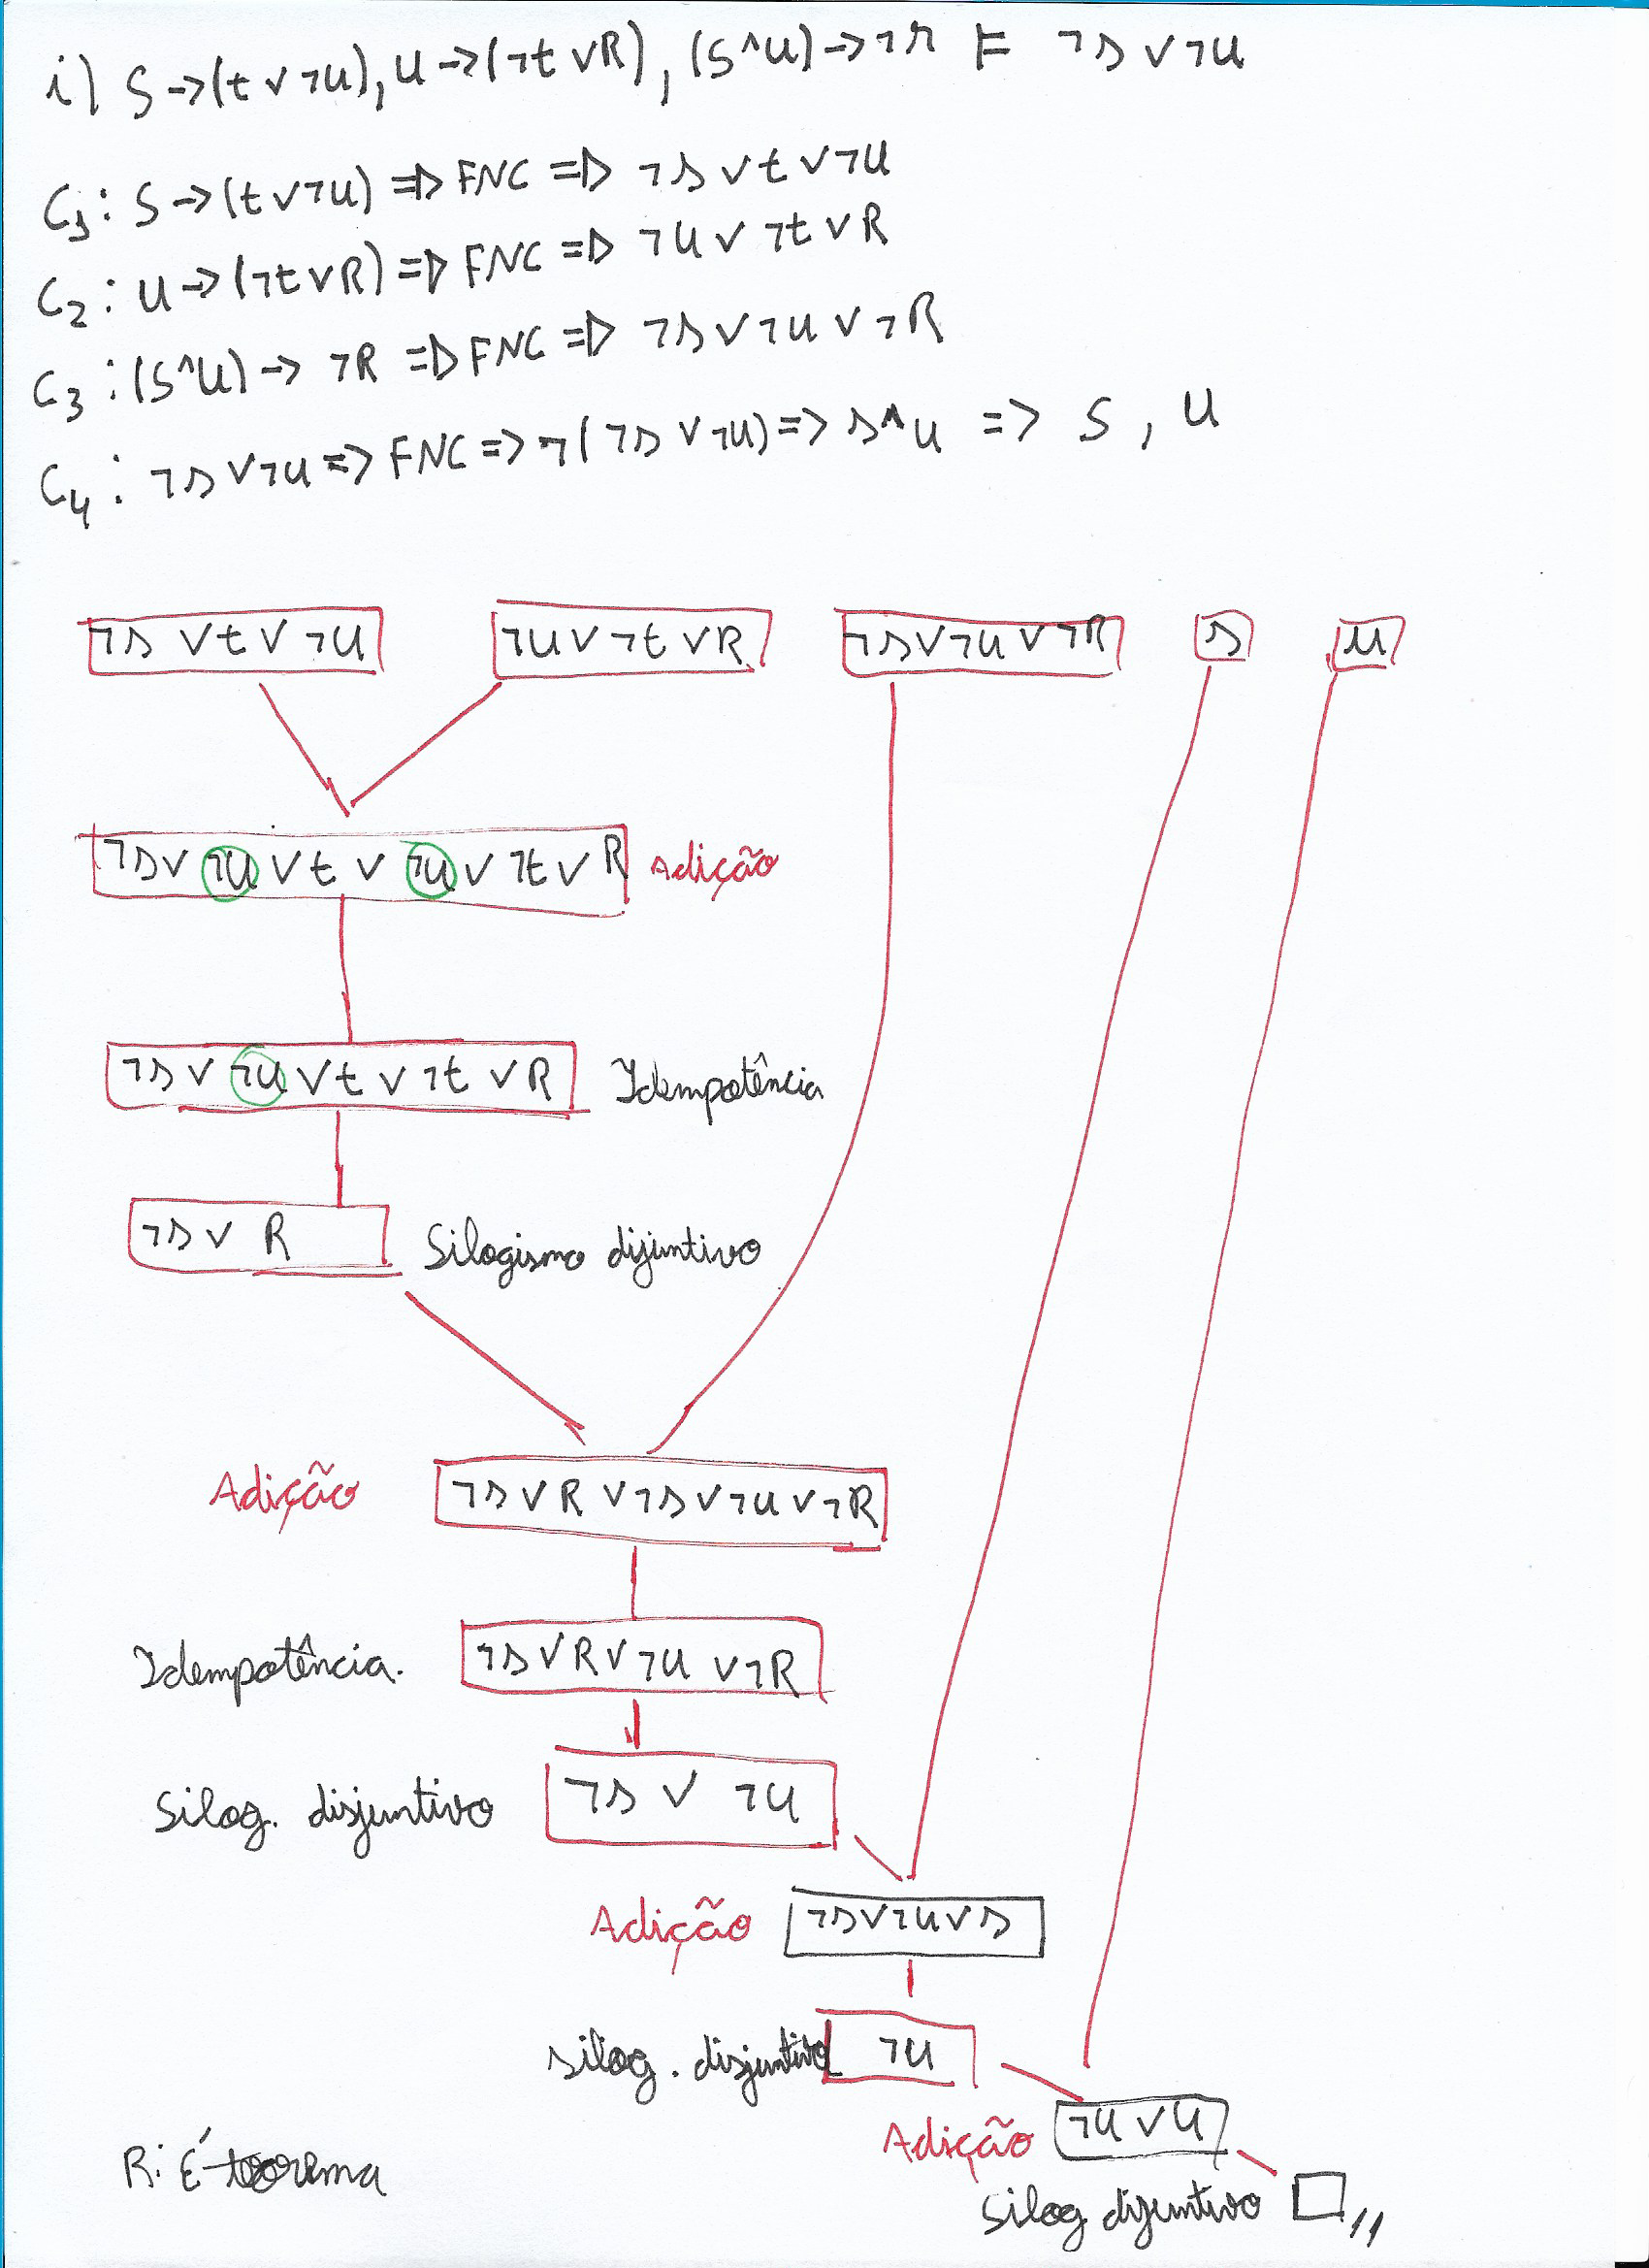 i) S→(t∨¬U), U→(¬t∨R), (S^U)→¬r ⊨ ¬s∨¬U
C1: S→(t∨¬U) ⇒ FNC ⇒ ¬s∨t∨¬U
C2: U→(¬t∨R) ⇒ FNC ⇒ ¬U∨¬t∨R
C3: (S^U)→ ¬R ⇒ FNC ⇒ ¬s∨¬U∨¬R
C4: ¬s∨¬U ⇒ FNC ⇒ ¬(¬s∨¬U) ⇒ s^U ⇒ S, U
¬s∨t∨¬U ¬U∨¬t∨R ¬s∨¬U∨¬R s u
¬s∨¬U∨t∨¬U∨¬t∨R Adição
¬s∨¬U∨t∨¬t∨R Idempotência
¬s∨R Silogismo dijuntivo
Adição ¬s∨R∨¬s∨¬U∨¬R
Idempotência. ¬s∨R∨¬U∨¬R
Silog. disjuntivo ¬s∨¬U
Adição ¬s∨¬U∨s
silog. disjuntivo ¬U
Adição ¬U∨U
R: É teorema
Silog dijuntivo □,,